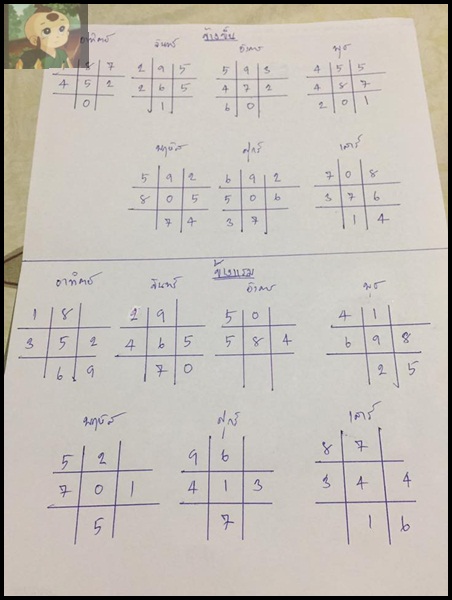 ข้างขึ้น
อาทิตย์ จันทร์ อังคาร พุธ
8 7 2 9 5 5 9 3 4 5 5
4 5 2 2 6 5 4 7 2 4 8 7
0 1 6 0 2 0 1
พฤหัส ศุกร์ เสาร์
5 9 2 6 9 2 7 0 8
8 0 5 5 0 6 3 7 6
7 4 3 7 1 4
ข้างแรม
อาทิตย์ จันทร์ อังคาร พุธ
1 8 2 9 5 0 4 1
3 5 2 4 6 5 5 8 4 6 9 8
6 9 7 0 2 5
พฤหัส ศุกร์ เสาร์
5 2 9 6 8 7
7 0 1 4 1 3 3 4 4
5 7 1 6